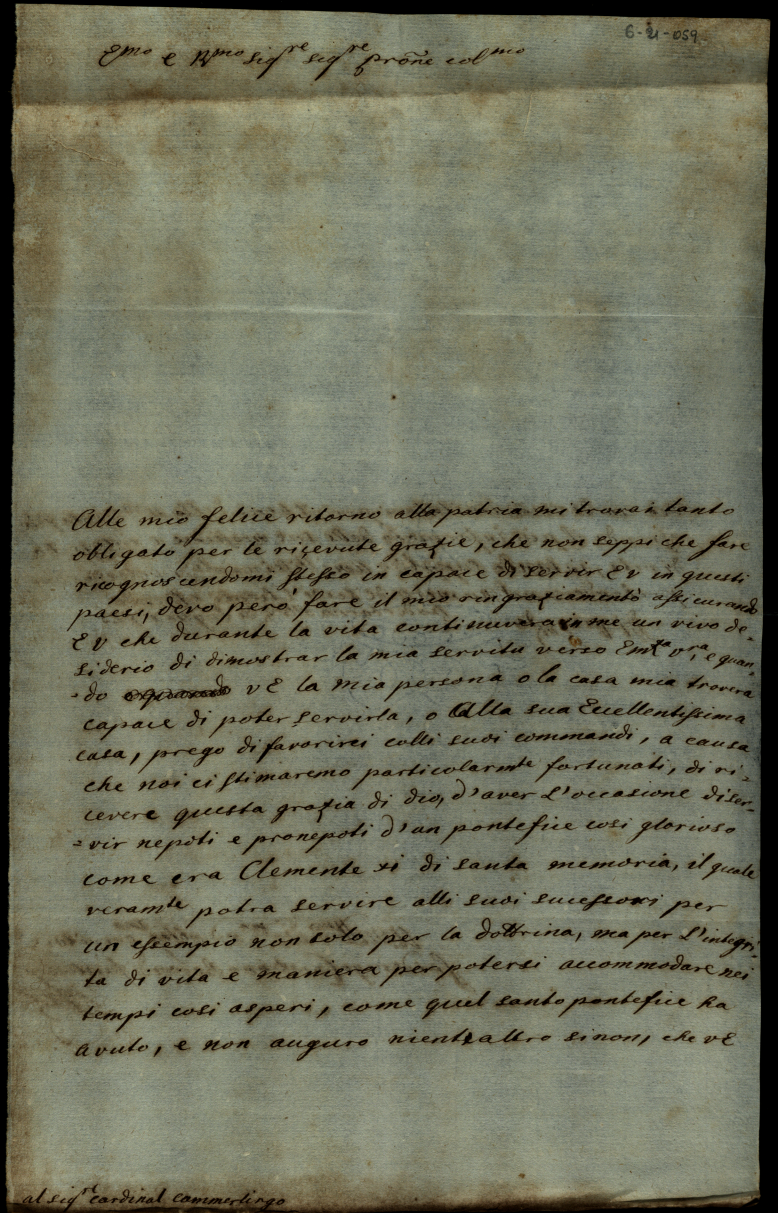 6-21-059
Emo e Rmo sigre sigre proñe colmo
Alle mio felice ritorno alla patria mi trovai tanto
obligato per le riçevute grazie, che non seppi che fare
ricognoscendomi stesso in capace di servir E V in questi
paesi, devo però fare il mio ringraziamento assicurando
E V che durante la vita continuvera in me un vivo de-
siderio di dimostrar la mia servitu verso Emza vra, e quan-
-do VE la mia persona o la casa mia trovera
capace di poter servirla, o Alla sua Eccellentissima
casa, prego di favorirci colli suoi commandi, a causa
che noi ci stimaremo particolarmte fortunati, di ri-
cevere questa grazia di dio, d'aver l'occasione di ser-
=vir nepoti e pronepoti d'un pontefice cosi glorioso
come era Clemente xi di santa memoria, il quale
veramte potra servire alli suoi sucessori per
un essempio non solo per la dottrina, ma per l'integri-
ta di vita e maniera per potersi accommodare nei
tempi cosi asperi, come quel santo pontefice ha
avuto, e non auguro nient altro sinon, che VE
al sigre cardinal cammerlingo